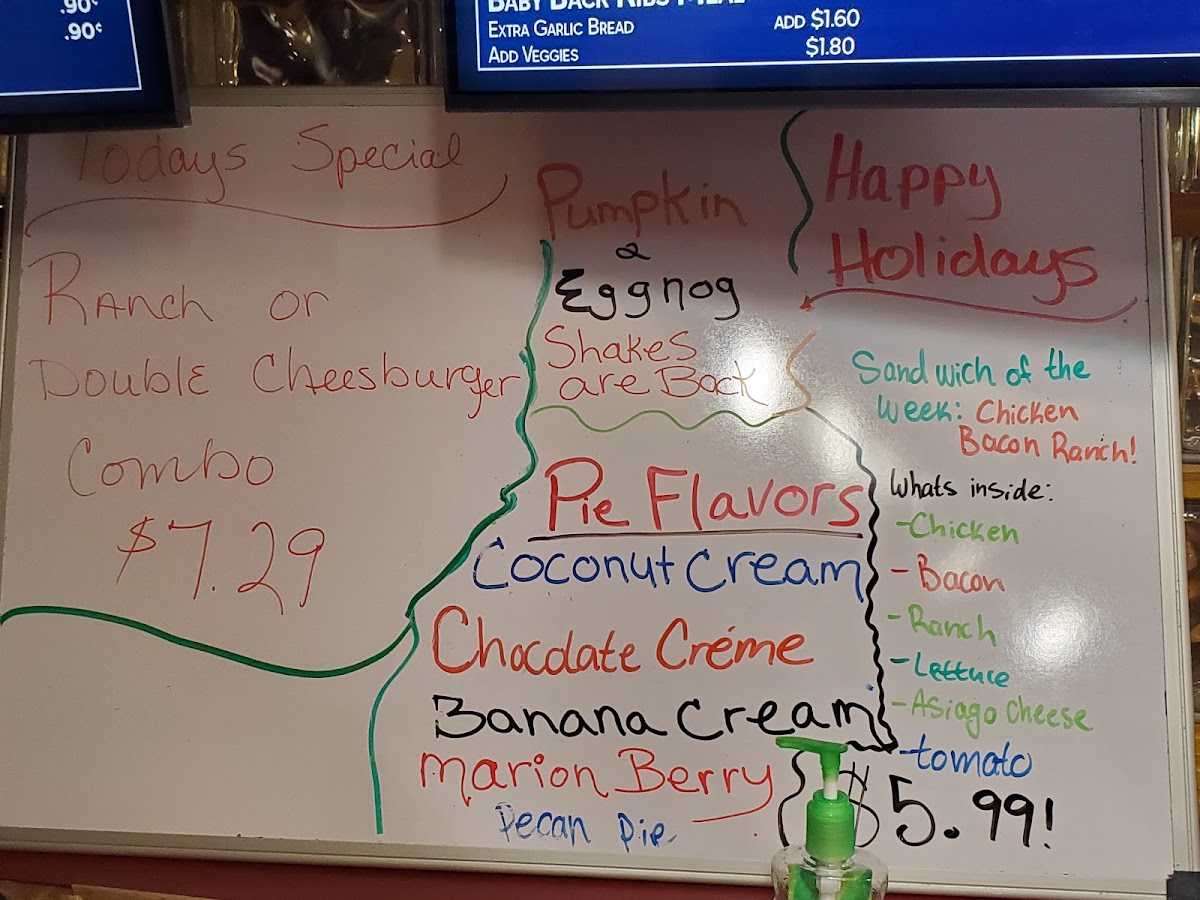 .90¢
.90¢
BABY BACK RIBS MEAL
EXTRA GARLIC BREAD ADD $1.60
ADD VEGGIES $1.80
Todays Special
Ranch or
Double Cheesburger
Combo
$7.29
Pumpkin
&
Eggnog
Shakes
are Back
Pie Flavors
Coconut Cream
Chocolate Créme
Banana Cream
Marion Berry
Pecan Pie
Happy
Holidays
Sandwich of the
Week: Chicken
Bacon Ranch!
Whats inside:
-Chicken
-Bacon
-Ranch
-Lettuce
-Asiago Cheese
-tomato
$5.99!